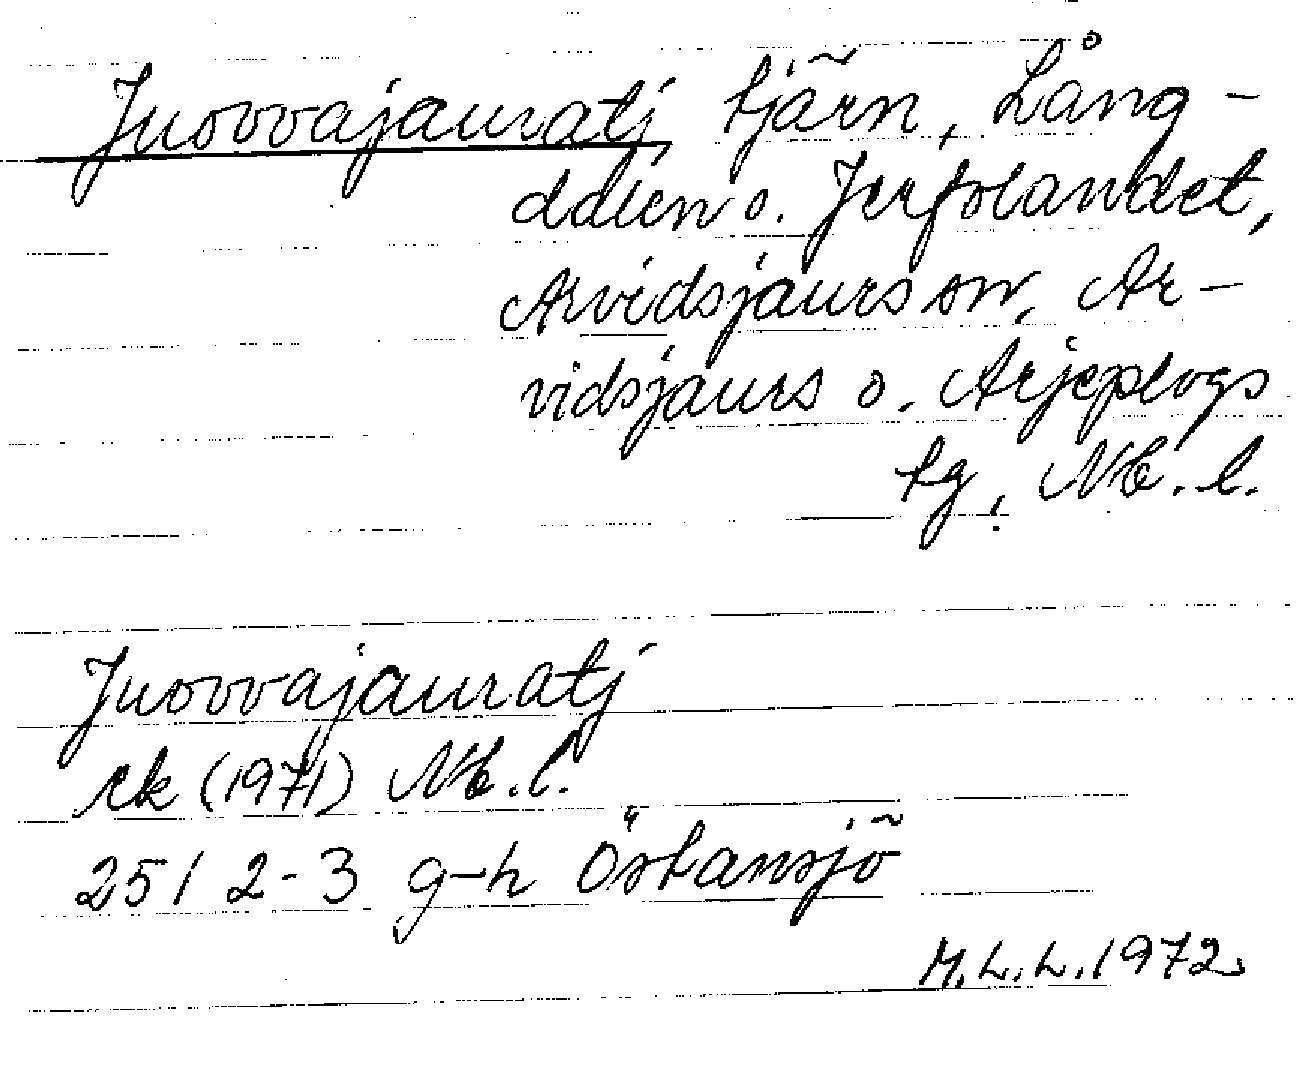 Juovvajauratj, tjärn, Lång-
ddlen o. Jerfolandet,
Arvidsjaurs sn, Ar-
vidsjaurs o. Arjeplogs
tg, Nb.l.
Juovvajauratj
rk (1971) Nb.l.
251 2-3 g-h Östansjö
M.L.L. 1972